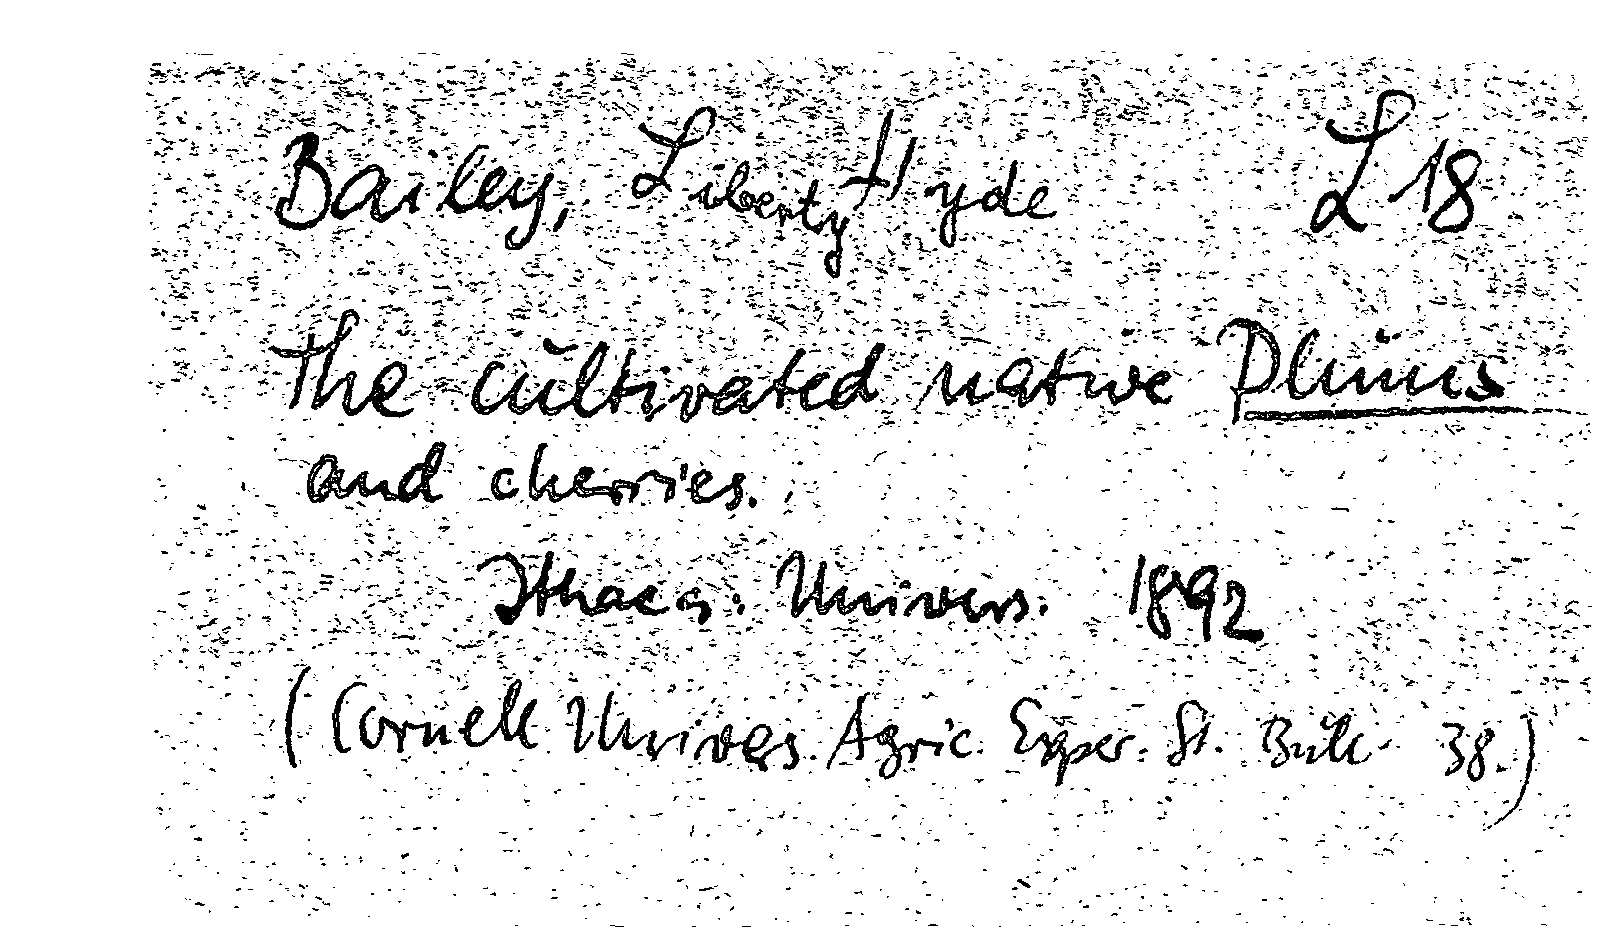 Bailey, Liberty Hyde L 18
The cultivated native Plums
and cherries.
Ithaca: Univers. 1892
(Cornell Univers. Agric. Exper. St. Bull. 38.)